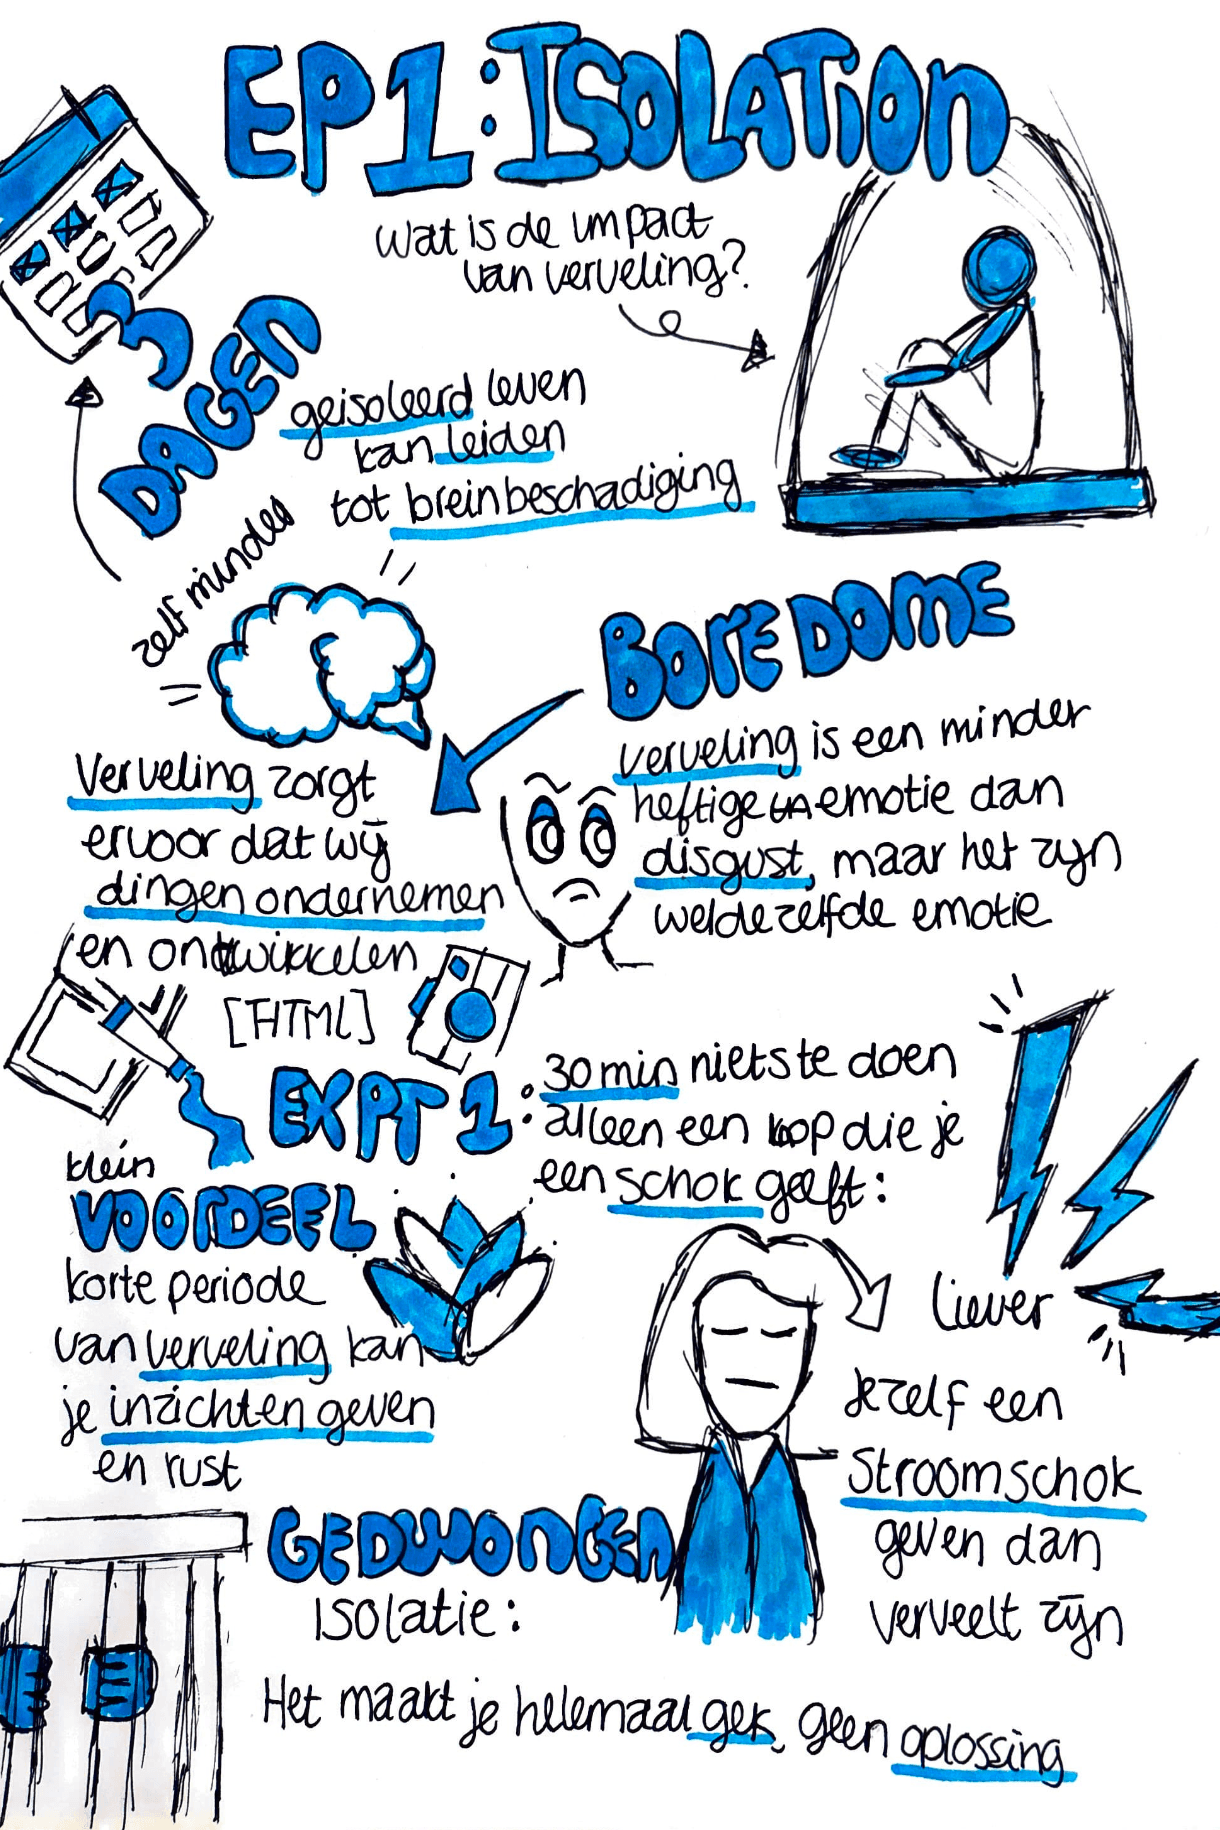 EP1: ISOLATION
Wat is de impact
van verveling?
3
DAGEN
zelf minder
geisoleerd leven
kan leiden
tot breinbeschadiging
BOREDOME
verveling is een minder
heftige emotie dan
disgust, maar het zijn
wel dezelfde emotie
Verveling zorgt
ervoor dat wij
dingen ondernemen
en ontwikkelen
[HTML]
EXPT 1:
30 min niets te doen
alleen een knop die je
een schok geeft:
klein
VOORDEEL
korte periode
van verveling kan
je inzichten geven
en rust
liever
Jezelf een
Stroomschok
geven dan
verveelt zijn
GEDWONGEN
ISOlatie:
Het maakt je helemaal gek, geen oplossing